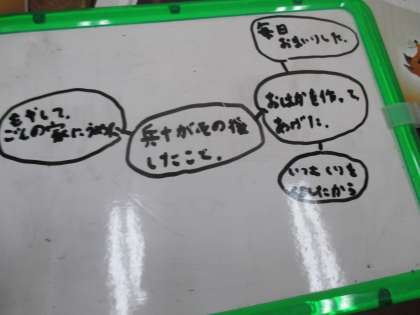 毎日
おまいりした。
おはかを作って
あげた。
いつも くりを
くれたから
兵十がその後
したこと。
もやして、
ごんの家にうめた